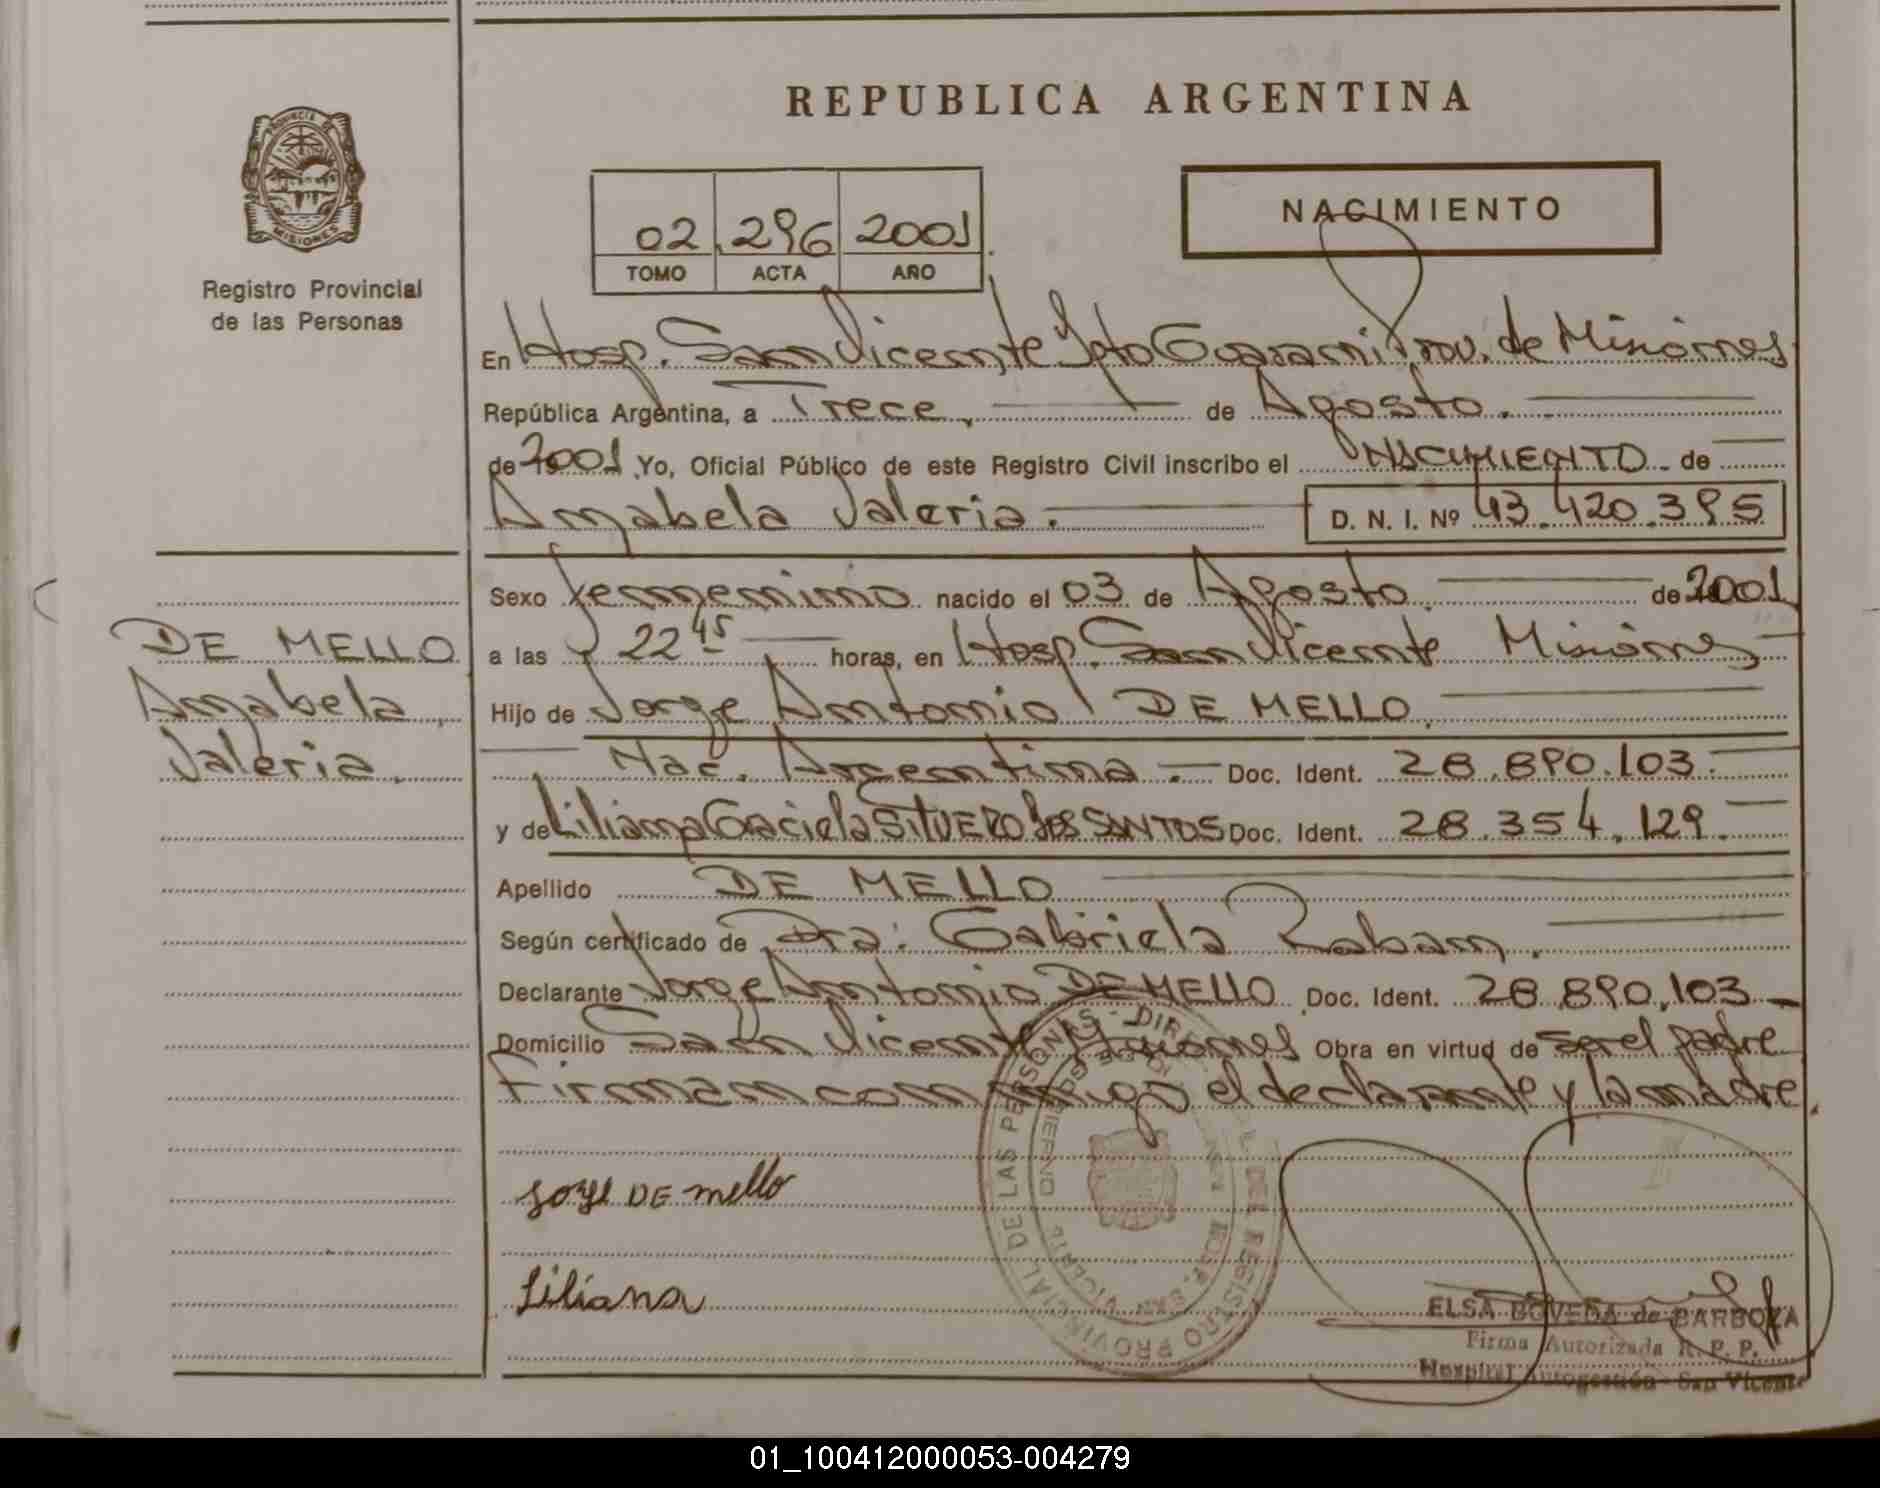 REPUBLICA ARGENTINA
PROVINCIA DE MISIONES
Registro Provincial
de las Personas
02 296 2001
TOMO ACTA AÑO
NACIMIENTO
En Hosp. San Vicente Dpto Guarani Prov. de Misiones
República Argentina, a Trece, de Agosto.
de 2001 Yo, Oficial Público de este Registro Civil inscribo el NACIMIENTO de
Anabela Valeria. D. N. I. Nº 43.420.395
DE MELLO
Anabela
Valeria.
Sexo femenino nacido el 03 de Agosto. de 2001
a las 22 45 horas, en Hosp. San Vicente Misiones
Hijo de Jorge Antonio DE MELLO.
Nac. Argentina - Doc. Ident. 28.890.103.
y de Liliana Graciela Doc. Ident. 28.354.129.
Apellido DE MELLO
Según certificado de Dra. Gabriela
Declarante Jorge Antonio DE MELLO Doc. Ident. 28.890.103
Domicilio San Vicente Misiones Obra en virtud de ser el padre
Firman conmigo el declarante y la madre.
Jorge DE mello
Liliana
DE LAS PERSONAS - DIREC DEL REGISTRO PROVINCIAL
HOSP. SAN VICENTE
ELSA BOVEDA de BARBOZA
Firma Autorizada R. P. P.
Hospital Autogestión - San Vicente
01_100412000053-004279